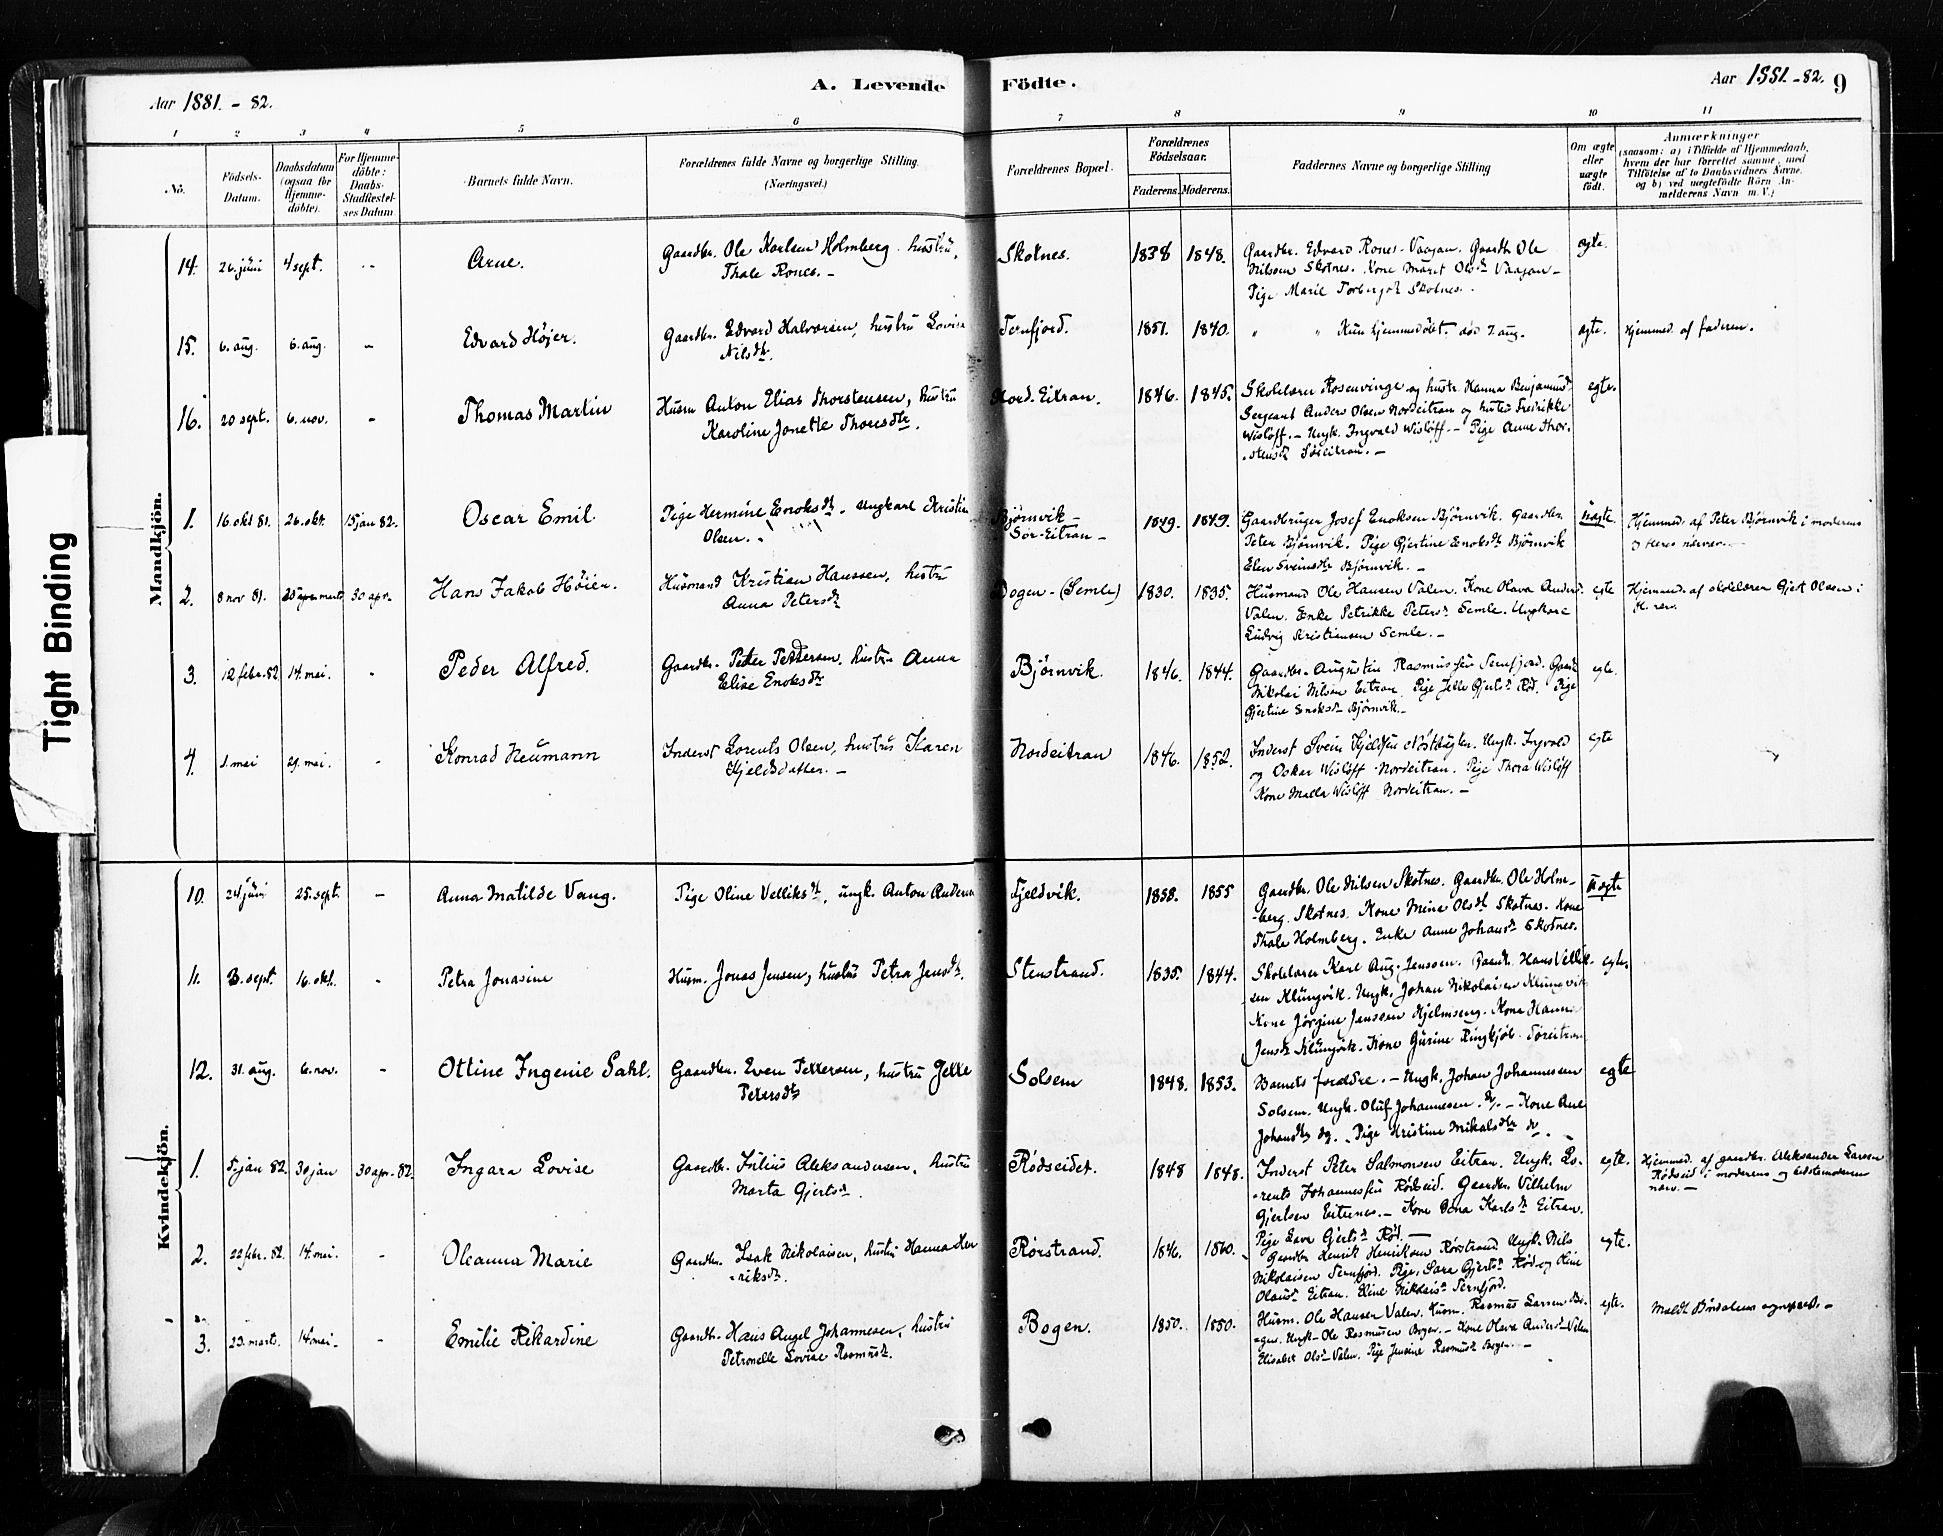 Aar 1881. - 82.
A. Levende Födte.
Aar 1881. - 82. 9
1 2 3 4 5 6 7 8 9 10 11
No.
Födsels-
Datum.
Daabsdatum
(ogsaa for
Hjemme-
döbte).
For Hjemme-
döbte:
Daabs-
Stadfæstel-
ses Datum
Barnets fulde Navn.
Forældrenes fulde Navne og borgerlige Stilling.
(Næringsvei.)
Forældrenes Bopæl.
Forældrenes
Födselsaar.
Faderens. Moderens.
Faddernes Navne og borgerlige Stilling
Om ægte
eller
uægte
födt.
Anmærkninger
(saasom: a) i Tilfælde af Hjemmedaab,
hvem der har forrettet samme, med
Tilföielse af to Daabsvidners Navne.
og b) ved uægtefödte Börn An-
melderens Navn m. V.)
Mandkjön.
14. 26. juni 4 sept. - - Arne. Gaardbr. Ole Karlsen Holmberg. hustru,
Thale Rones. -
Skotnes. 1838 1848. Gaardbr. Edvard Rones - Vaagan. Gaardb. Ole
Nilsen Skotnes. Kone Marit Olsdtr Vaagan -
Pige Marie Torbergsdtr Skotnes.
egte.
15. 6. aug. 6. aug. - Edvard Höjer. Gaardbr. Edvard Halvorsen, hustru Lovise
Nilsdtr.
Ternfjord. 1851. 1840. " " Kun hjemmedöbt. död 7 aug. egte. Hjemmed. af faderen.
16. 20 sept. 6. nov. - Thomas Martin Husm Anton Elias Thorstensen, hustru
Karoline Jonette Thoresdtr.
Nord. Eitran. 1846. 1845. Skolelærer Rosenvinge og hustr. Hanna Benjaminsd.
Sergeant Anders Olsen Nordeitran og hustru Fredrikke
Wislöff. - Ungk. Ingvald Wislöff. - Pige Anne Thor-
stensdtr Söreitran. -
egte.
1. 16. okt 81. 26. okt. 15 jan 82. Oscar Emil. Pige Hermine Enoksdtr. ungkarl Kristin
Olsen.
Björnvik -
Sör-Eitran -
1849. 1849. Gaardbruger Josef Enoksen Björnvik. Gaardbr.
Peter Björnvik. Pige Gjertine Enoksdtr Björnvik
Elen Sveinsdtr Björnvik. -
uægte. Hjemmed. af Peter Björnvik i moderens
og fleres nærvær. -
2. 8 nov 81. 30 apr. Hans Jakob Höier. Husmand Kristian Hanssen, hustru
Anna Petersdtr
Bogen - (Semle) 1830. 1835. Husmand Ole Hansen Valen. Kone Olava Andersd.
Valen. Enke Petrikke Petersdtr Semle. Ungkare
Ludvig Kristiansen Semle. -
egte Hjemmed. af skolelærer Gjert Olsen i
fl. nærv.
3. 12 febr. 82 14. mai. - Peder Alfred. Gaardbr. Peter Pettersen, hustru Anne
Elise Enoksdtr
Björnvik. 1846. 1844. Gaardbr. Augustin Rasmussen Ternfjord. Gaard
Nikolai Nilsen Eitran. Pige Jelle Gjertsdtr Röd. Pige
Gjertine Enoksdtr Björnvik. -
egte.
4. 1. mai 29. mai. - Konrad Neumann Inderst Lorents Olsen, hustru Karen
Kjeldsdatter. -
Nordeitran 1846. 1852. Inderst Svein Kjeldsen. Ungk. Ingvald
og Oskar Wislöff Nordeitran. Pige Thora Wislöff
Kone Malla Wislöff Nordeitran. -
egte
Kvindekjön.
10. 24 juni 25. sept. - Anna Matilde Vang. Pige Oline Velliksdtr, ungk. Anton Andersen Fjeldvik. 1858. 1855 Gaardbr. Ole Nilsen Skotnes. Gaardbr. Ole Holm-
berg. Skotnes. Kone Mine Olsdtr Skotnes. Kone
Thale Holmberg. Enke Anne Johansdtr Skotnes.
uægte
11. 3. sept. 16. okt. - Petra Jonasine Husm. Jonas Jensen, hustru Petra Jensdtr. Stenstrand. 1835. 1844. Skolelærer Karl Aug. Jenssen. Gaardb. Hans Vellik-
sen Klungvik. Ungk. Johan Nikolaisen Klungvik
Kone Jörgine Jenssen Hjelmseng. Kone Hanna
Jensdtr Klungvik. Kone Gurine Ringkjöb. Söreitran
egte.
12. 31. aug. 6. nov. - Ottine Ingenie Sahl. Gaardbr. Even Pettersen, hustru Jette
Petersdtr
Solsem 1848. 1853. Barnets forældre. - Ungk. Johan Johannessen
Solsem. Ungk. Oluf Johannesen. do. - Kone Ane
Johansdtr do. Pige Kristine Mikalsdtr do. -
egte
1. 5 jan 82. 30 jan 30 apr. 82. Ingara Lovise Gaardbr. Julius Aleksandersen, hustru
Marta Gjertsdtr.
Rödseidet. 1848 1848. Inderst Peter Salmonsen Eitran. Ungk. Lo-
rents Johannessen Rödseid. Gaardbr. Vilhelm
Gjertsen Eiternes. - Kone Dina Karlsdtr Eitran.
Pige Lava Gjertsdtr Röd. -
egte. Hjemmed. af gaardbr. Aleksander Larsen
Rödseid i moderens og bedstemoderens
nærv. -
2. 22 febr. 82. 14. mai. - Oleanna Marie Gaardbr. Isak Nikolaisen, hustru Hanna Hen
riksdtr.
Rörstrand. 1846. 1860. Gaardbr Henrik Henriksen Rörstrand. Ungk. Nils
Nikolaisen Ternfjord. Pige, Sara Gjertsdtr Röd og Oline
Olausdtr Eitran. Eline Nikolaisdtr Ternfjord.
egte.
3. 23. marts. 14. mai - - Emilie Rikardine Gaardbr. Hans Angel Johannesen, hustru
Petronelle Lovise Rasmusdtr.
Bogen. 1850. 1850. Husm. Ole Hansen Valen. Husm. Rasmus Larsen Bo-
gen. Ungk. Ole Rasmusen Bogen. - Kone Olava Andersdtr Valen
Elisabet Olsdtr Valen. Pige Jensine Rasmusdtr Bogen. -
egte.
Tight Binding